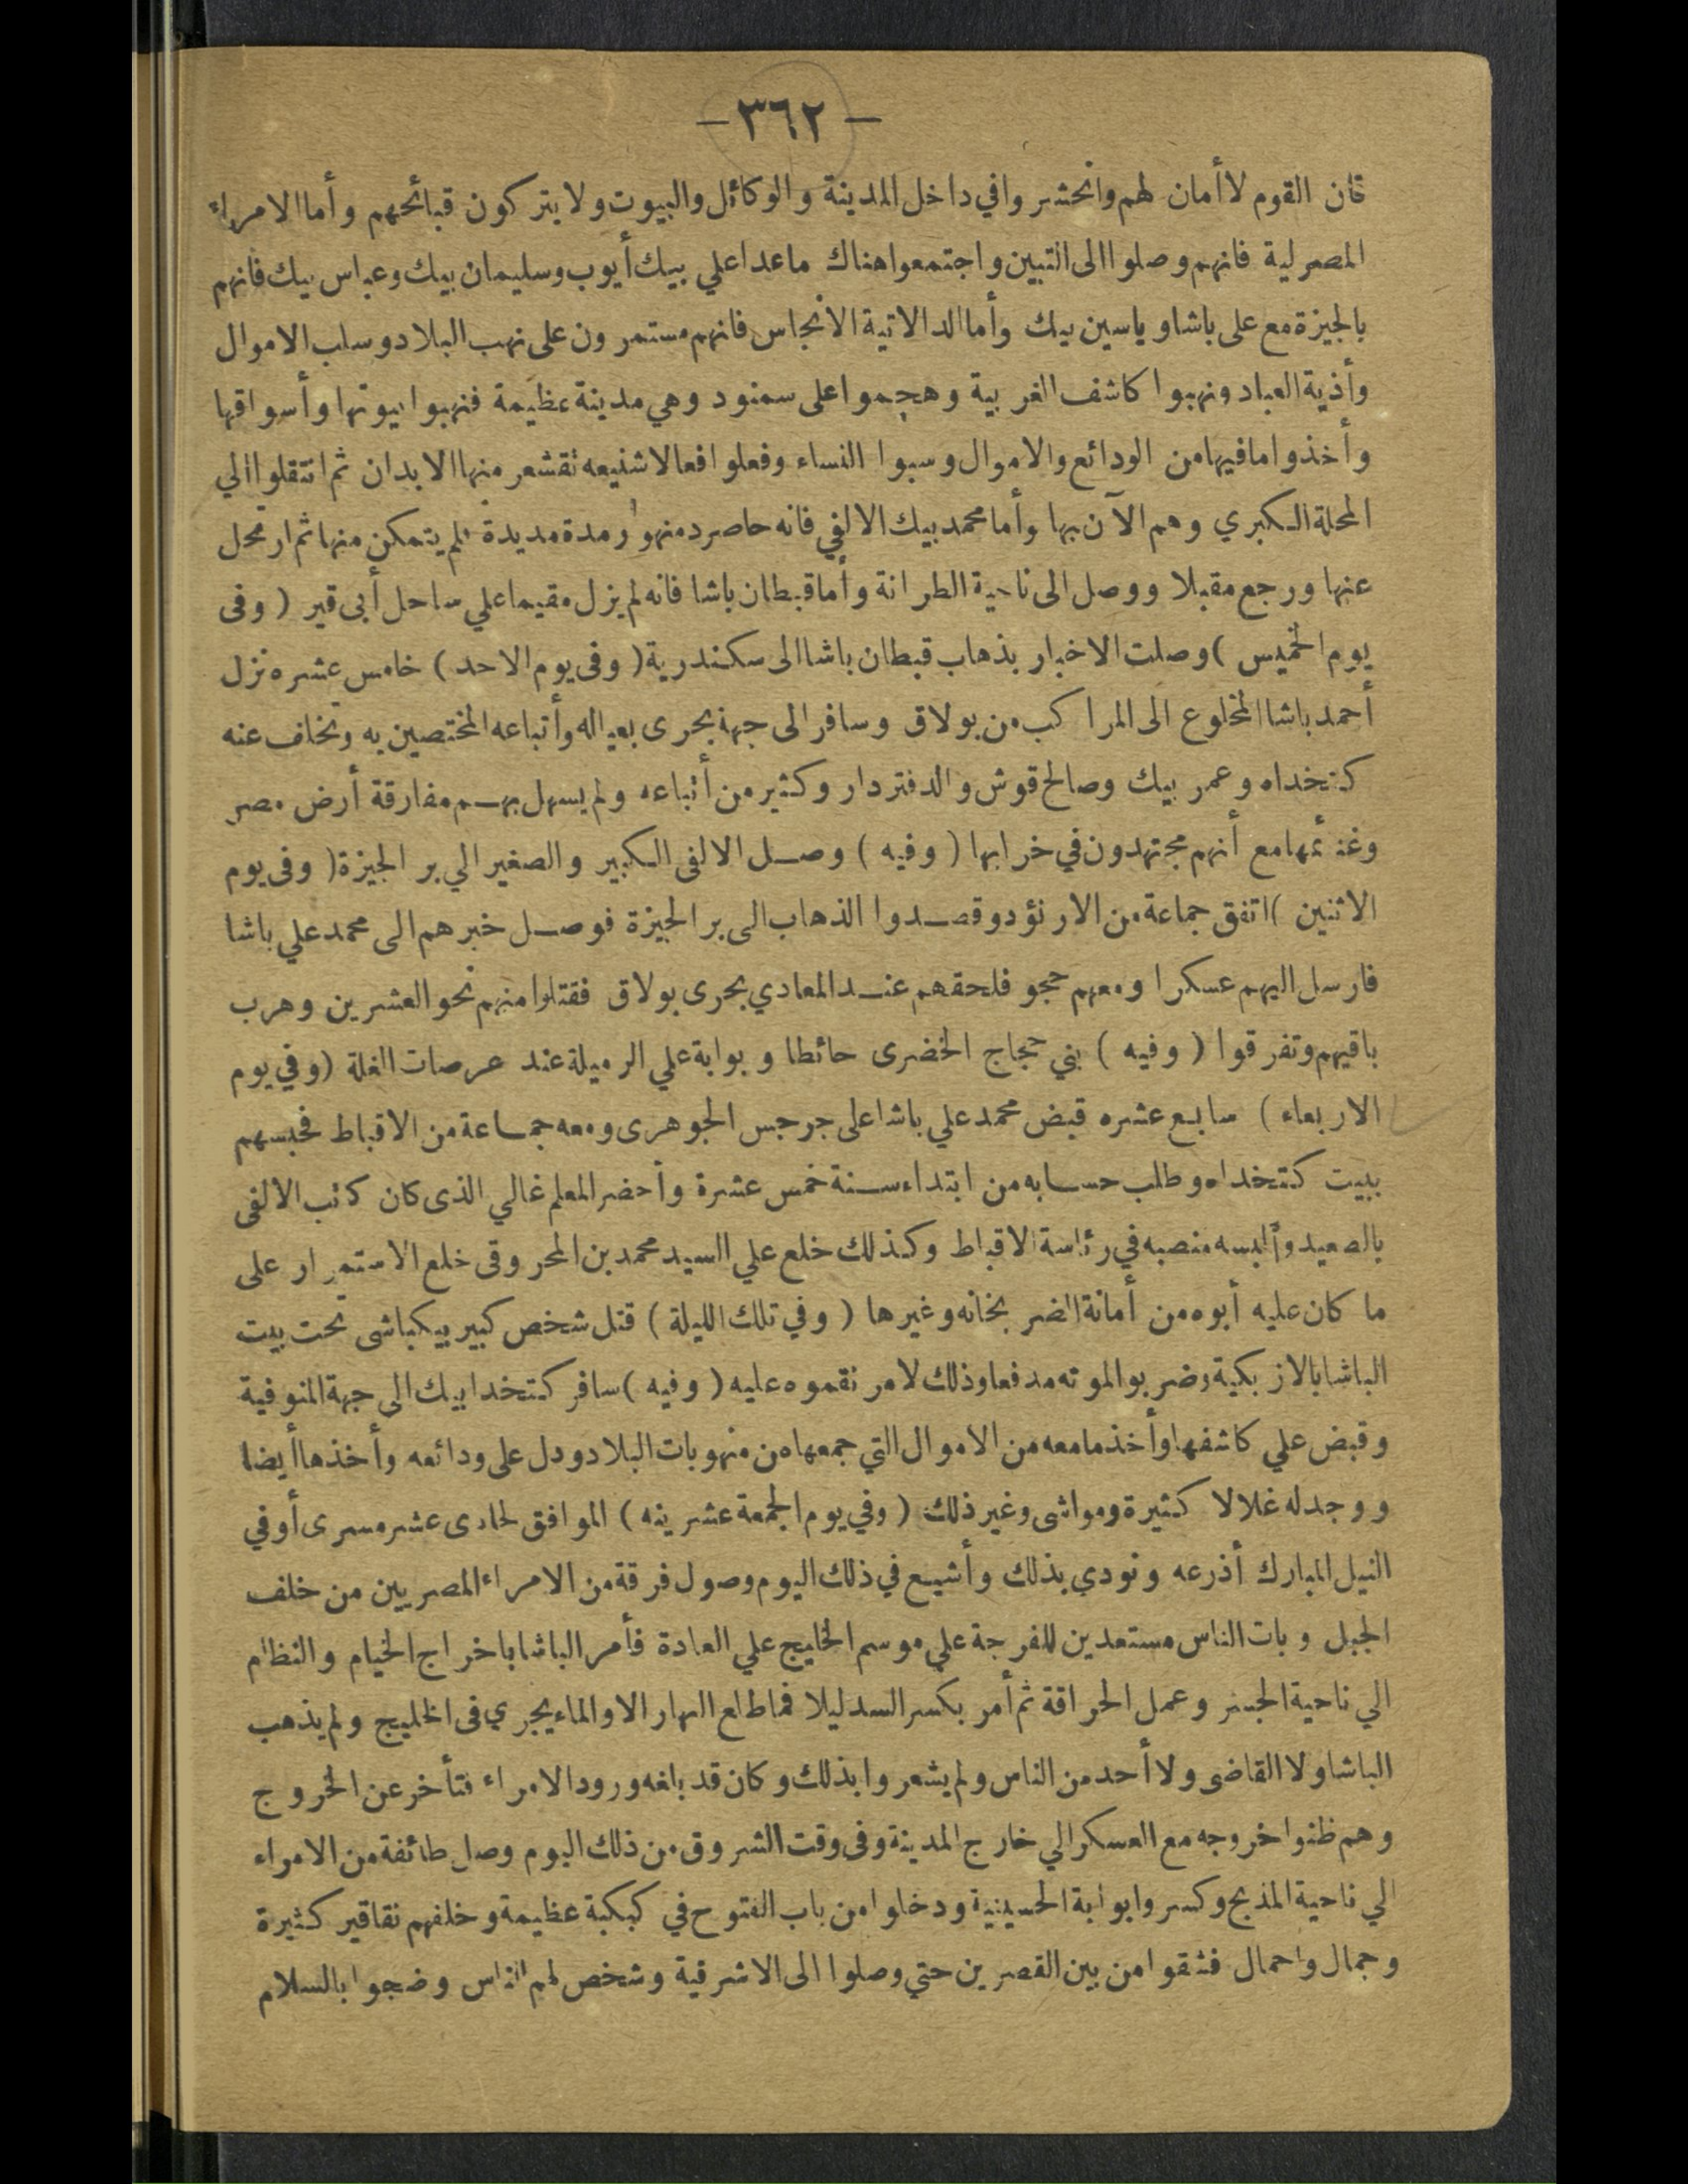 — ٣٦٢ —
فان القوم لا أمان لهم وانحشروا في داخل المدينة والوكائل والبيوت ولا يتركون قبائحهم وأما الامراء
المصرلية فانهم وصلوا الى التبين واجتمعوا هناك ما عدا علي بيك أيوب وسليمان بيك وعباس بيك فانهم
بالجيزة مع على باشا وياسين بيك وأما الدالاتية الانجاس فانهم مستمرون على نهب البلاد وسلب الاموال
وأذية العباد ونهبوا كاشف الغربية وهجموا على سمنود وهي مدينة عظيمة فنهبوا بيوتها وأسواقها
وأخذوا ما فيها من الودائع والاموال وسبوا النساء وفعلوا افعالا شنيعه تقشعر منها الابدان ثم انتقلوا الي
المحلة الكبري وهم الآن بها وأما محمد بيك الالفي فانه حاصر دمنهور مدة مديدة فلم يتمكن منها ثم ارتحل
عنها ورجع مقبلا ووصل الى ناحية الطرانة وأما قبطان باشا فانه لم يزل مقيما علي ساحل أبى قير ( وفى
يوم الخميس ) وصلت الاخبار بذهاب قبطان باشا الى سكندرية ( وفى يوم الاحد ) خامس عشره نزل
أحمد باشا المخلوع الى المراكب من بولاق وسافر الى جهة بحرى بعياله وأتباعه المختصين به وتخلف عنه
كتخداه وعمر بيك وصالح قوش والدفتردار وكثير من أتباعه ولم يسهل بهم مفارقة أرض مصر
وغنائمها مع أنهم مجتهدون في خرابها ( وفيه ) وصل الالفى الكبير والصغير الي بر الجيزة ( وفى يوم
الاثنين ) اتفق جماعة من الارنؤد وقصدوا الذهاب الى بر الجيزة فوصل خبرهم الى محمد علي باشا
فارسل اليهم عسكرا ومعهم حجو فلحقهم عند المعادي بحرى بولاق فقتلوا منهم نحو العشرين وهرب
باقيهم وتفرقوا ( وفيه ) بني حجاج الخضرى حائطا وبوابة علي الرميلة عند عرصات الغلة ( وفي يوم
الاربعاء ) سابع عشره قبض محمد علي باشا على جرجس الجوهرى ومعه جماعة من الاقباط فحبسهم
ببيت كتخداه وطلب حسابه من ابتداء سنة خمس عشرة وأحضر المعلم غالي الذى كان كاتب الالفى
بالصعيد وألبسه منصبه في رئاسة الاقباط وكذلك خلع علي السيد محمد بن المحروقى خلع الاستمرار على
ما كان عليه أبوه من أمانة الضربخانه وغيرها ( وفي تلك الليلة ) قتل شخص كبير بيكباشى تحت بيت
الباشا بالازبكية وضربوا لموته مدفعا وذلك لامر نقموه عليه ( وفيه ) سافر كتخدا بيك الى جهة المنوفية
وقبض علي كاشفها وأخذ ما معه من الاموال التي جمعها من منهوبات البلاد ودل على ودائعه وأخذها أيضا
ووجد له غلالا كثيرة ومواشى وغير ذلك ( وفي يوم الجمعة عشرينه ) الموافق لحادى عشر مسرى أوفي
النيل المبارك أذرعه ونودي بذلك وأشيع في ذلك اليوم وصول فرقة من الامراء المصريين من خلف
الجبل وبات الناس مستعدين للفرجة علي موسم الخليج علي العادة فأمر الباشا باخراج الخيام والنظام
الي ناحية الجسر وعمل الحراقة ثم أمر بكسر السد ليلا فما طلع النهار الا والماء يجري فى الخليج ولم يذهب
الباشا ولا القاضى ولا أحد من الناس ولم يشعروا بذلك وكان قد بلغه ورود الامراء فتأخر عن الخروج
وهم ظنوا خروجه مع العسكر الي خارج المدينة وفى وقت الشروق من ذلك اليوم وصل طائفة من الامراء
الي ناحية المذبح وكسروا بوابة الحسينية ودخلوا من باب الفتوح في كبكبة عظيمة وخلفهم نقاقير كثيرة
وجمال واحمال فشقوا من بين القصرين حتي وصلوا الى الاشرفية وشخص لهم الناس وضجوا بالسلام